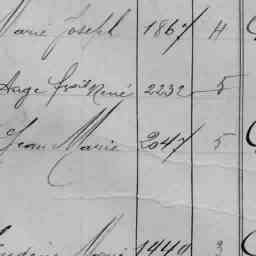 Marie Joseph 1867 H
frois René 2232 5
Jean Marie 2047 5
Marie 1440 3